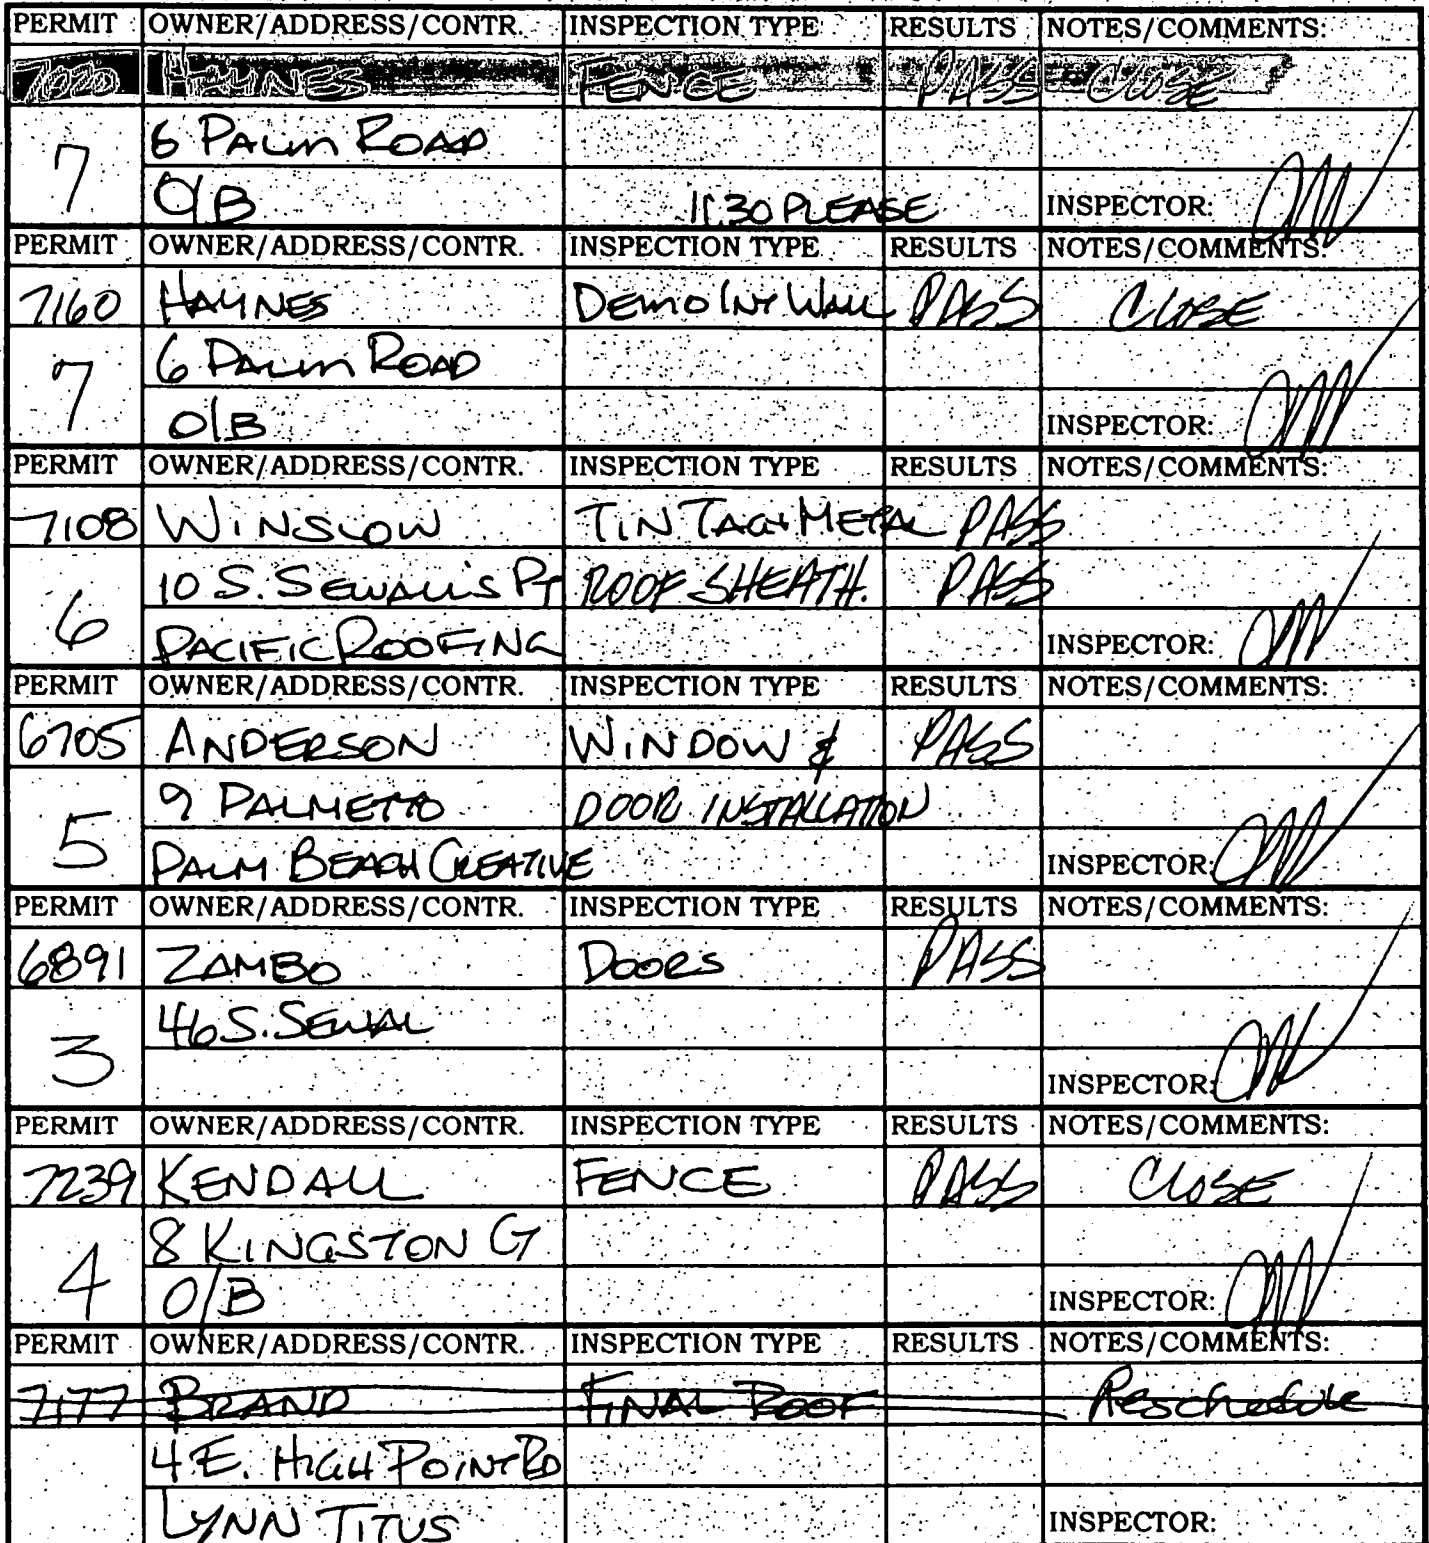 PERMIT OWNER/ADDRESS/CONTR. INSPECTION TYPE RESULTS NOTES/COMMENTS:
7020 HAYNES FENCE PASS CLOSE
6 PALM ROAD
7
O/B 11:30 PLEASE INSPECTOR:
PERMIT OWNER/ADDRESS/CONTR. INSPECTION TYPE RESULTS NOTES/COMMENTS:
7160 HAYNES DEMO INT WALL PASS CLOSE
6 PALM ROAD
7
O/B INSPECTOR:
PERMIT OWNER/ADDRESS/CONTR. INSPECTION TYPE RESULTS NOTES/COMMENTS:
7108 WINSLOW TIN TAG+METAL PASS
10 S. SEWALL'S PT ROOF SHEATH. PASS
6
PACIFIC ROOFING INSPECTOR:
PERMIT OWNER/ADDRESS/CONTR. INSPECTION TYPE RESULTS NOTES/COMMENTS:
6705 ANDERSON WINDOW & PASS
9 PALMETTO DOOR INSTALLATION
5
PALM BEACH CREATIVE INSPECTOR:
PERMIT OWNER/ADDRESS/CONTR. INSPECTION TYPE RESULTS NOTES/COMMENTS:
6891 ZAMBO DOORS PASS
46 S. SEWAL
3
INSPECTOR:
PERMIT OWNER/ADDRESS/CONTR. INSPECTION TYPE RESULTS NOTES/COMMENTS:
7239 KENDALL FENCE PASS CLOSE
8 KINGSTON CT
4
O/B INSPECTOR:
PERMIT OWNER/ADDRESS/CONTR. INSPECTION TYPE RESULTS NOTES/COMMENTS:
7177 BRAND FINAL ROOF Reschedule
4 E. HIGH POINT RD
LYNN TITUS INSPECTOR: